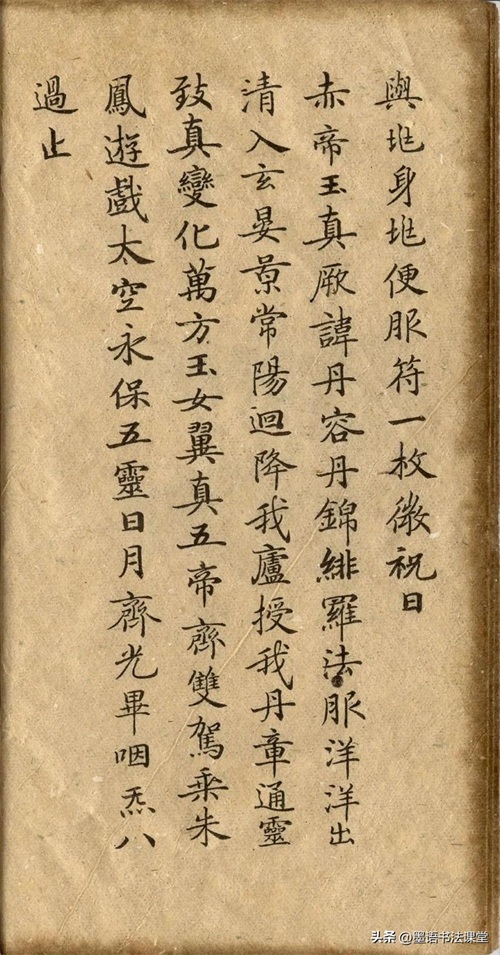 與兆身兆便服符一枚微祝曰
赤帝玉真厥諱丹容丹錦緋羅法服洋洋出
清入玄晏景常陽迴降我廬授我丹章通靈
致真變化萬方玉女翼真五帝齊雙駕乘朱
鳳遊戲太空永保五靈日月齊光畢咽炁八
過止
头条 @墨语书法课堂